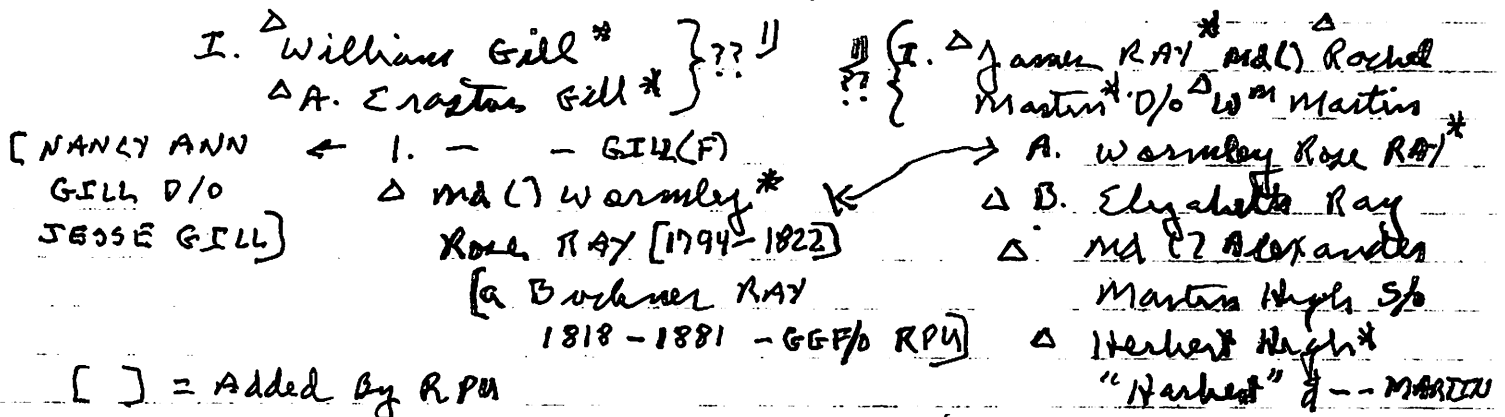 I. △ William Gill * } ?? !!
△ A. Erastus Gill * }
[NANCY ANN ← 1. — — GILL (F)
GILL D/O △ md () Wormley *
JESSE GILL] Rose RAY [1794-1822]
[a Buckner RAY
1818-1881 - GGF/o RPU]
[ ] = Added By RPU
!! ?? { I. △ James RAY * md () △ Rachel
Martin * D/o △ Wm Martin
A. Wormley Rose RAY *
△ B. Elizabeth Ray
△ md () Alexander
Martin High S/o
△ Herbert High *
"Harbert" & -- MARTIN